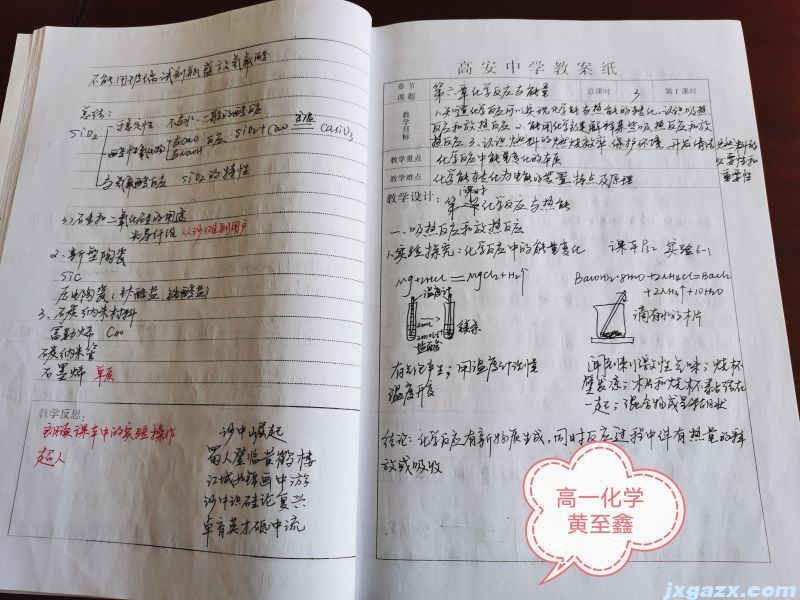 不能用玻璃试剂瓶盛放氢氟酸
总结:
SiO2
稳定性 不与水、一般的酸反应
酸性氧化物 与CaO 反应 SiO2+CaO 高温 CaSiO3
与NaOH
与氢氟酸反应 SiO2的特性
3)石英和二氧化硅的用途
光导纤维 从沙滩到用户
2、新型陶瓷
SiC
压电陶瓷(钛酸盐、锆酸盐)
3、石炭纳米材料
富勒烯 C60
石炭纳米管
石墨烯 单质
教学反思:
课本中的实验操作
沙中崛起
蜀人登临黄鹤楼
江城如画中游
沙中识硅论复兴
卓育英才砥中流
高安中学教案纸
章节
课题
第六章化学反应与能量
总课时 3 第1课时
教学目标
1.知道化学反应可以实现化学能与热能的转化,认识吸热
反应和放热反应 2.能用化学键解释某些吸热反应和放
热反应 3.认识燃料的燃烧效率、保护环境、开发清洁燃料的
必要性和
重要性
教学重点
化学反应中能量变化的本质
教学难点
化学能转化为电能的装置特点及原理
教学设计:
1课时
第一节 化学反应与热能
一、吸热反应和放热反应
1.实验探究:化学反应中的能量变化 课本P32 实验6-1
Mg+2HCl=MgCl2+H2↑
Ba(OH)2·8H2O+2NH4Cl=BaCl2
+2NH3↑+10H2O
温度计
2mL
2mol/L
盐酸
镁条
滴有水的木片
有气泡产生;用温度计测量
温度升高
闻到刺激性气味;烧杯
壁发凉;木片和烧杯黏结在
一起;混合物成呈糊状
结论:化学反应有新物质生成,同时反应过程中伴有热量的释
放或吸收
高一化学
黄至鑫
jxgazx.com